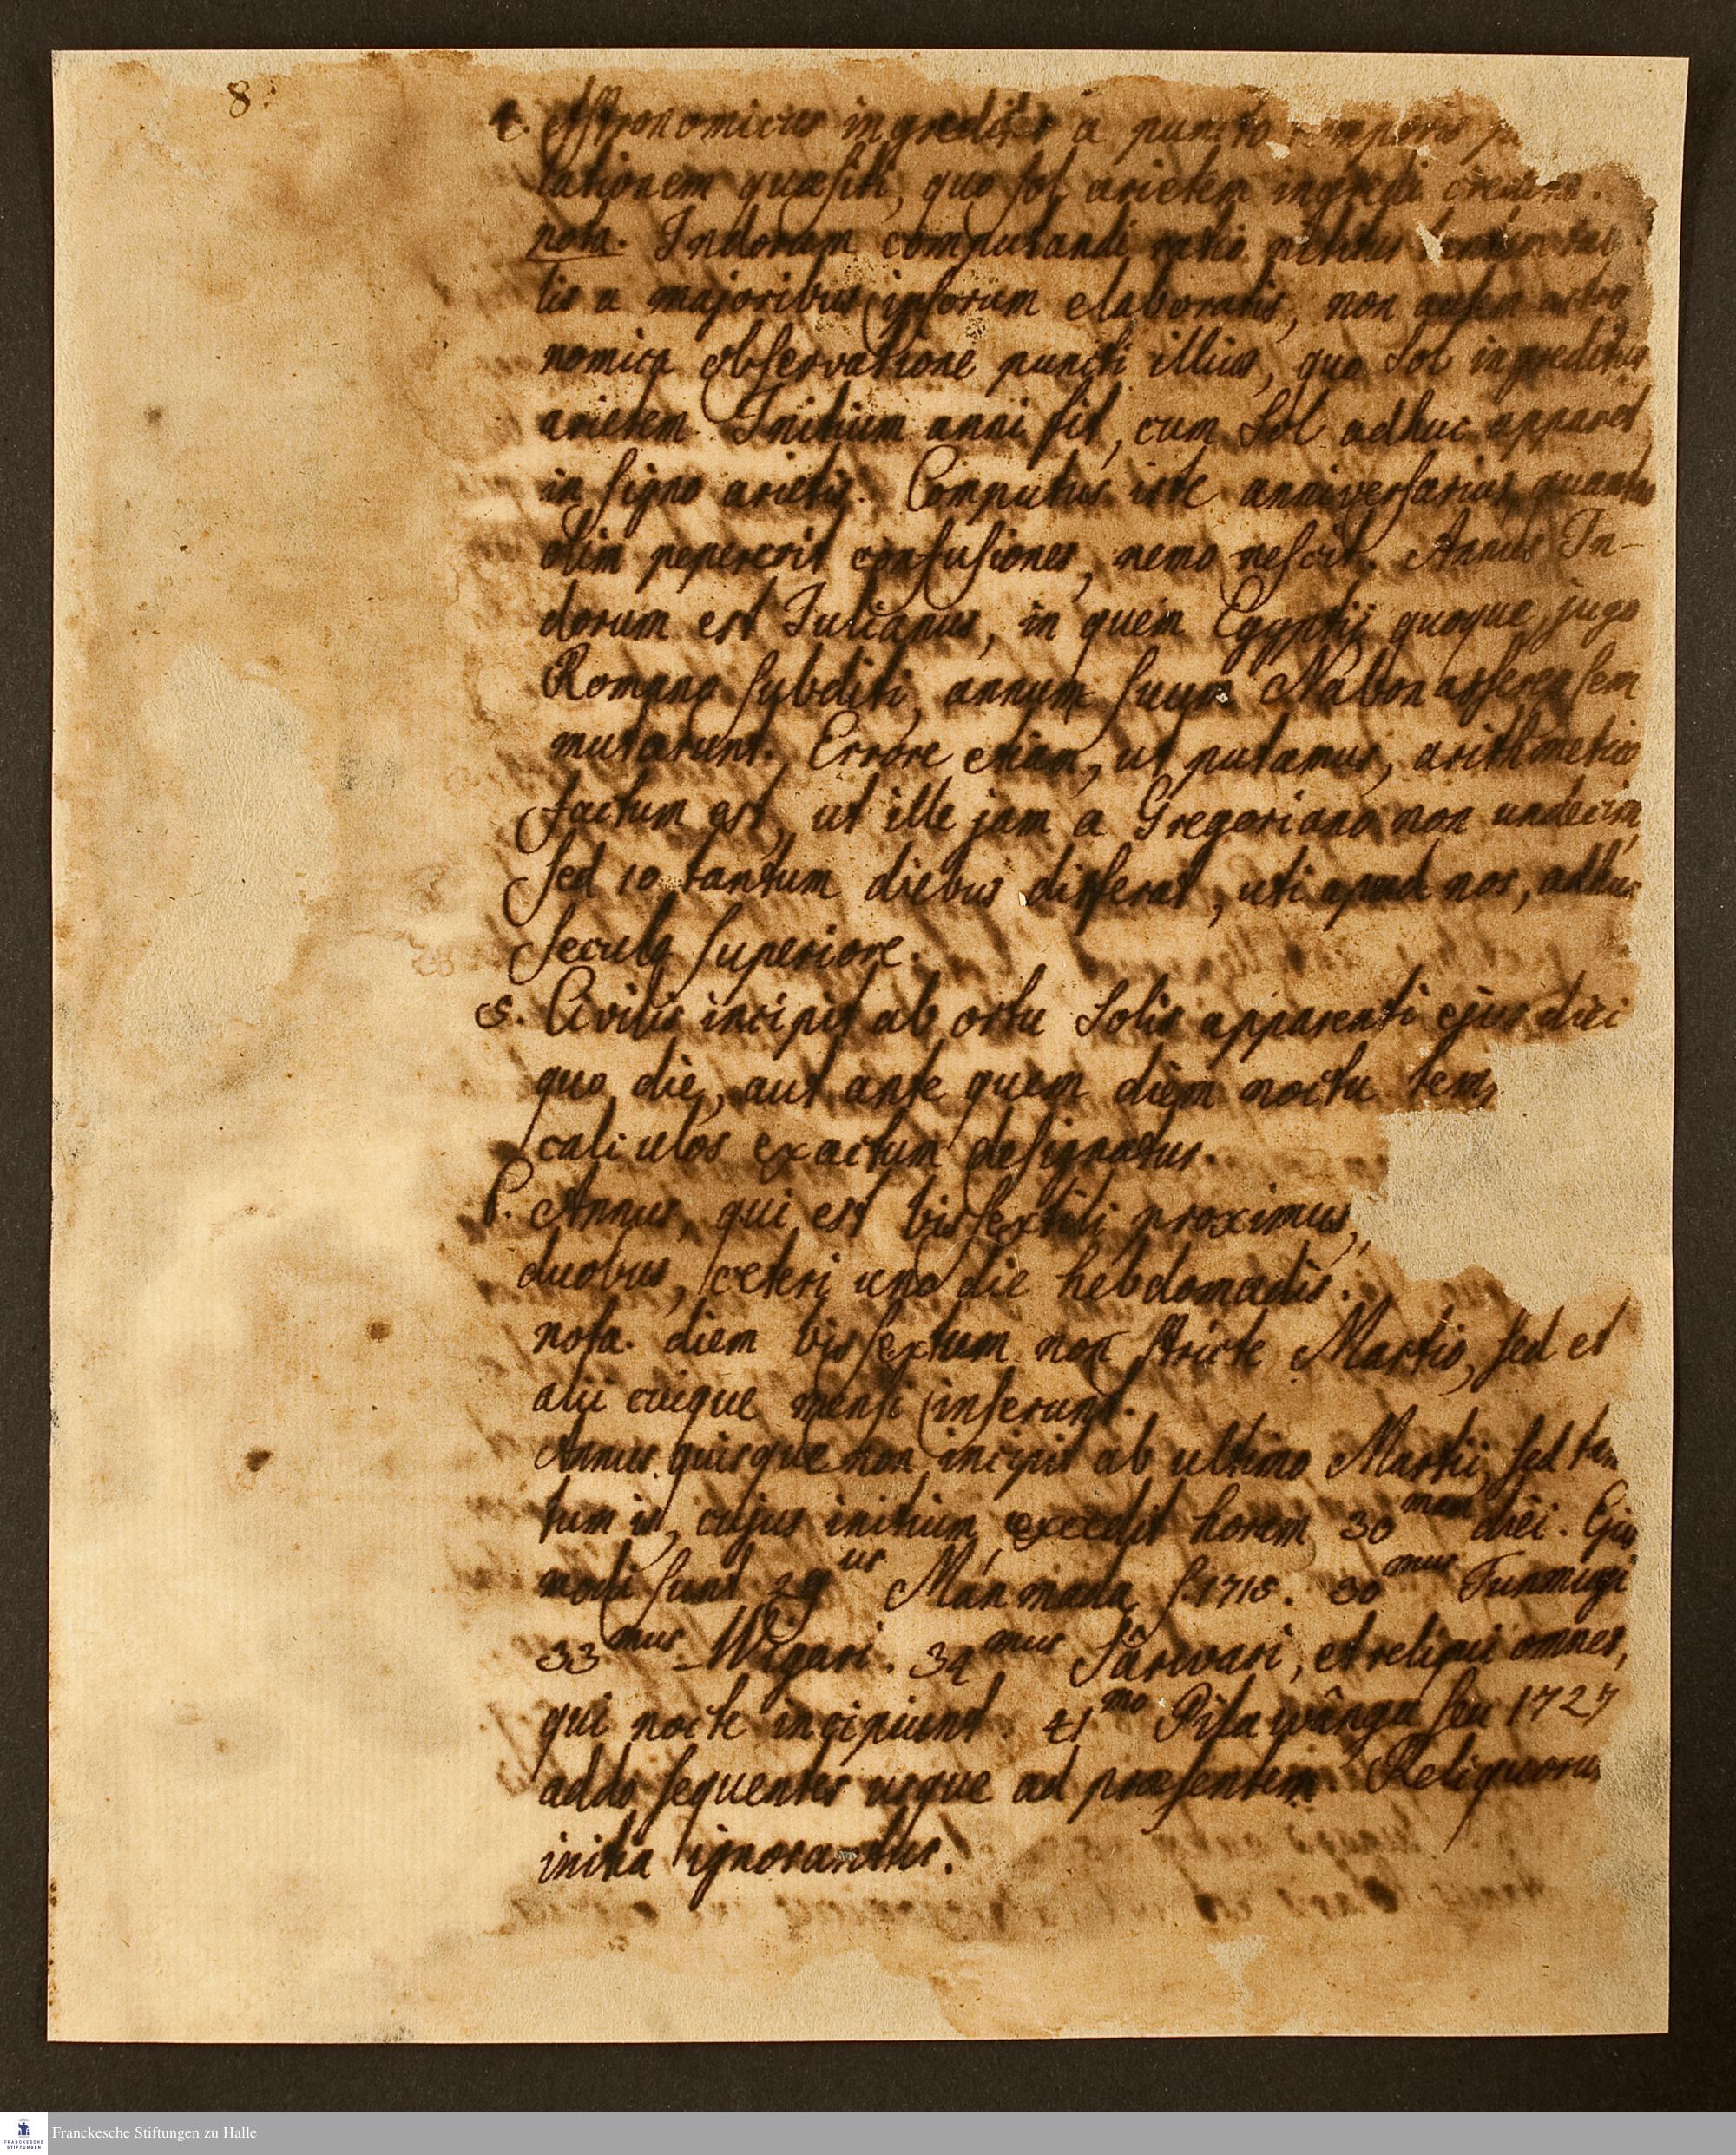 8.
Astronomicus ingreditur a puncto temporis
tationem quæsiti, quo sol arietem ingredi
nota. Indorum computandi ratio nititur
lis a majoribus ipsorum elaboratis, non autem astro
nomica observatione puncti illius, quo Sol ingreditur
arietem. Initium anni fit, cum Sol adhuc apparet
in signo arietis. Computus iste anniversarius quantas
olim pepererit confusiones, nemo nescit. Annus In-
dorum est Julianus, in quem Egyptii quoque jugo
Romano subditi, annum suum Nabonassereusem
mutarunt. Errore etiam, ut putamus, arithmetico
factum est, ut ille jam a Gregoriano non undecim
sed 10 tantum diebus differat, uti apud nos, adhuc
seculo superiore.
5. Civilis incipit ab ortu Solis apparenti ejus diei
quo die, aut ante quem diem noctu tem
calculos exactum designatur.
Annus, qui est bissextili proximus,
duobus, ceteri uno die hebdomadis.
nota. diem bissextum non stricte Martio, sed et
alii cuique mensi inserunt.
Annus quisque non incipit ab ultimo Martii, sed tan
tum is, cujus initium excedit horam 30 mam diei. Ejus
modi sunt 29 us Mánmada s. 1715. 30 mus Tunmugi
33 mus Wigari. 34 mus Sârwari, et reliqui omnes,
qui nocte incipiunt. 41 mo Pilawânga seu 1727
addo sequentes usque ad præsentem. Reliquorum
initia ignorantur.
Franckesche Stiftungen zu Halle
FRANCKESCHE
STIFTUNGEN